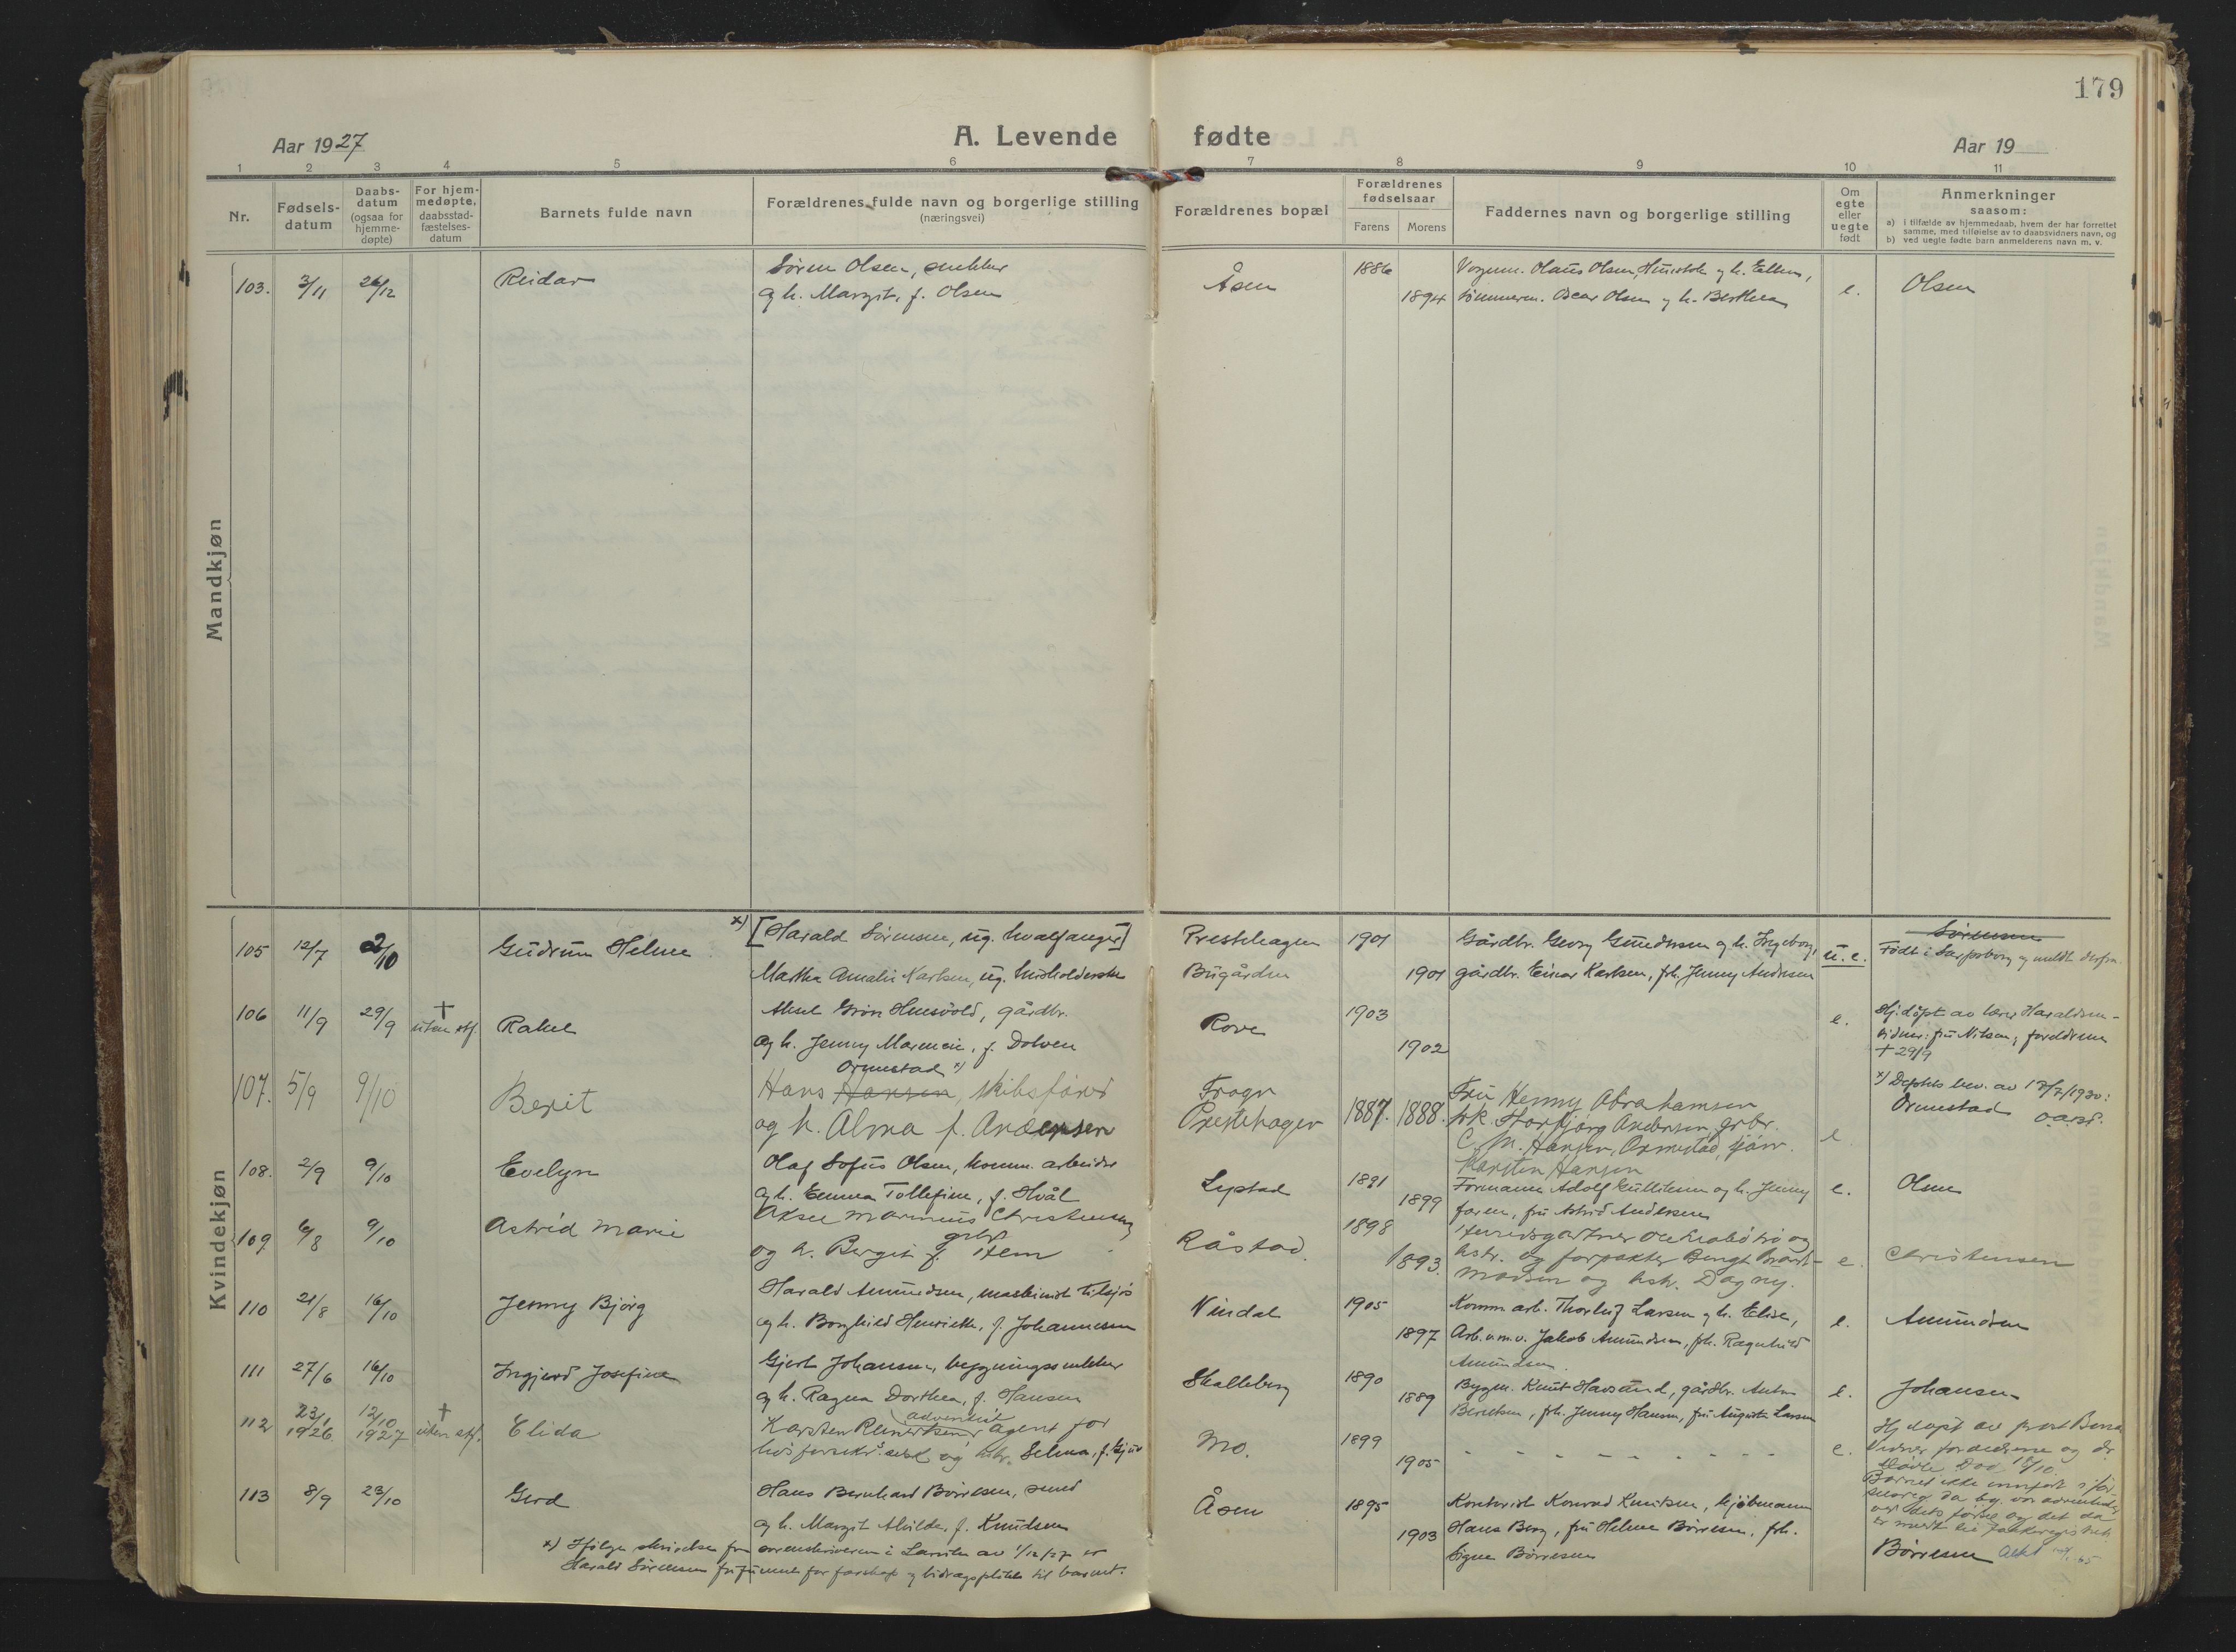 179
Aar 1927
A. Levende fødte
Aar 19
1 2 3 4 5 6 7 8 9 10 11
Nr.
Fødsels-
datum
Daabs-
datum
(ogsaa for
hjemme-
døpte)
For hjem-
medøpte,
daabsstad-
fæstelses-
datum
Barnets fulde navn
Forældrenes fulde navn og borgerlige stilling
(næringsvei)
Forældrenes bopæl
Forældrenes
fødselsaar
Farens Morens
Faddernes navn og borgerlige stilling
Om
egte
eller
uegte
født
Anmerkninger
saasom:
a) i tilfælde av hjemmedaab, hvem der har forrettet
samme, med tilføielse av to daabsvidners navn, og
b) ved uegte fødte barn anmelderens navn m. v.
Mandkjøn
103. 3/11 26/12 Reidar
Sören Olsen, snekker
og h. Margit, f. Olsen
Åsen
1886
1894
Olaus Olsen, og h. Ellen,
tömmerm. Oscar Olsen og h. Berthea
e.
Olsen
Kvindekjøn
105 12/7 2/10 Gudrun Helene
x) [Harald Sörensen, ug. hvalfanger]
Martha Amalie Karlsen, ug. husholderske
Prestehagen
Bugården
1901
1901
Gårdbr. Georg Gundersen og h. Ingeborg,
gårdbr. Einar Karlsen, frk. Jenny Andersen
u. e.
Sörensen
Født i Sarpsborg og meldt derfra.
106 11/9 29/9 † uten stf. Rakel
Aksel Grön Huesvold, gårdbr.
og h. Jenny Marensie, f. Dolven
Rove
1903
1902
e.
Hj.döpt av lærer Haraldsen -
vidner: fru Nilsen, foreldrene
† 29/9
107. 5/9 9/10 Berit
Ormestad x)
Hans Hansen, skibsförer
og h. Alma f. Andersen
Fragn
Prestehagen
1887. 1888.
Fru Henny Abrahamsen
frk. Andersen, grbr.
C. M. Hansen, Ormestad, sjöm.
Karsten Hansen
e
x) Depchts bev. av 17/7 1930:
Ormestad
108. 2/9 9/10 Evelyn
Olaf Sofus Olsen, komm. arbeider
og h. Emma Tollefine, f. Hvål
Lystad
1891
1899
Formann Adolf Gulliksen og h. Jenny
faren, fru Astrid Andersen
e.
Olsen
109 6/8 9/10 Astrid Marie
Aksel Marinius Christensen
grbr.
og h. Bergit f. Item
Råstad.
1898
1893.
og
hstr. og forpakter Bengt
Madsen og hstr. Dagny.
e.
Christensen
110 21/8 16/10 Jenny Bjørg
Harald Amundsen, maskinist tilsjös
og h. Borghild Henriette, f. Johannesen
Vindal
1905
1897
Komm. arb. Thorleif Larsen og h. Elise,
Arb. u.m.v. Jakob Amundsen, frk. Ragnhild
Amundsen.
e.
Amundsen
111 27/6 16/10 Ingjerd Josefine
Gjert Johansen, bygningssnekker
og h. Ragna Dorthea, f. Hansen
Skalleberg
1890
1889
Bygm. Knut Havsund, gårdbr. Anton
Berntsen, frk. Jenny Hansen, fru Augusta Larsen
e.
Johansen
112 23/1 1926. 12/10 1927 † uten stf. Elida
adventist
Karsten Reinertsen, agent for
livsforsikr. selsk og hstr. Selma, f.
Mo.
1899
1905
- - - - - - - - -
e.
Hj.døpt av prest
Vidner foreldrene og dr.
Död 15/10.
Barnet ikke innfört i för-
da var adventister
ved dets fødsel og det da
er meldt til folkeregistret.
113 8/9 23/10 Gerd
Hans Bernhard Börresen, smed
og h. Margit Alvilde, f. Knudsen
Åsen
1895
1903
Kontorist Konrad Knutsen, kjöbmann
Hans Berg, fru Helene Börresen, frk.
Signe Börresen
Börresen
x) Ifölge skrivelse fra sorenskriveren i Larvik av 1/12 27 er
Harald Sörensen frifunnet for farskap og bidragsplikt til barnet.